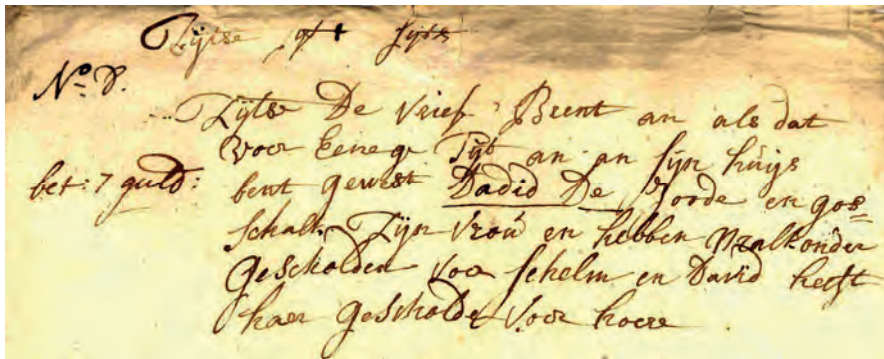 Zijtse
No: 8.
Zijtse De Vries Brent an als dat
voor Eenege Tijt an an sijn huijs
bet: 7 guld:
bent gewest David De Joode en gos=
schalk Zijn Vrou en hebben Malkonder
Gescholden voor schelm en David heeft
haer Gescholde Voor hoere